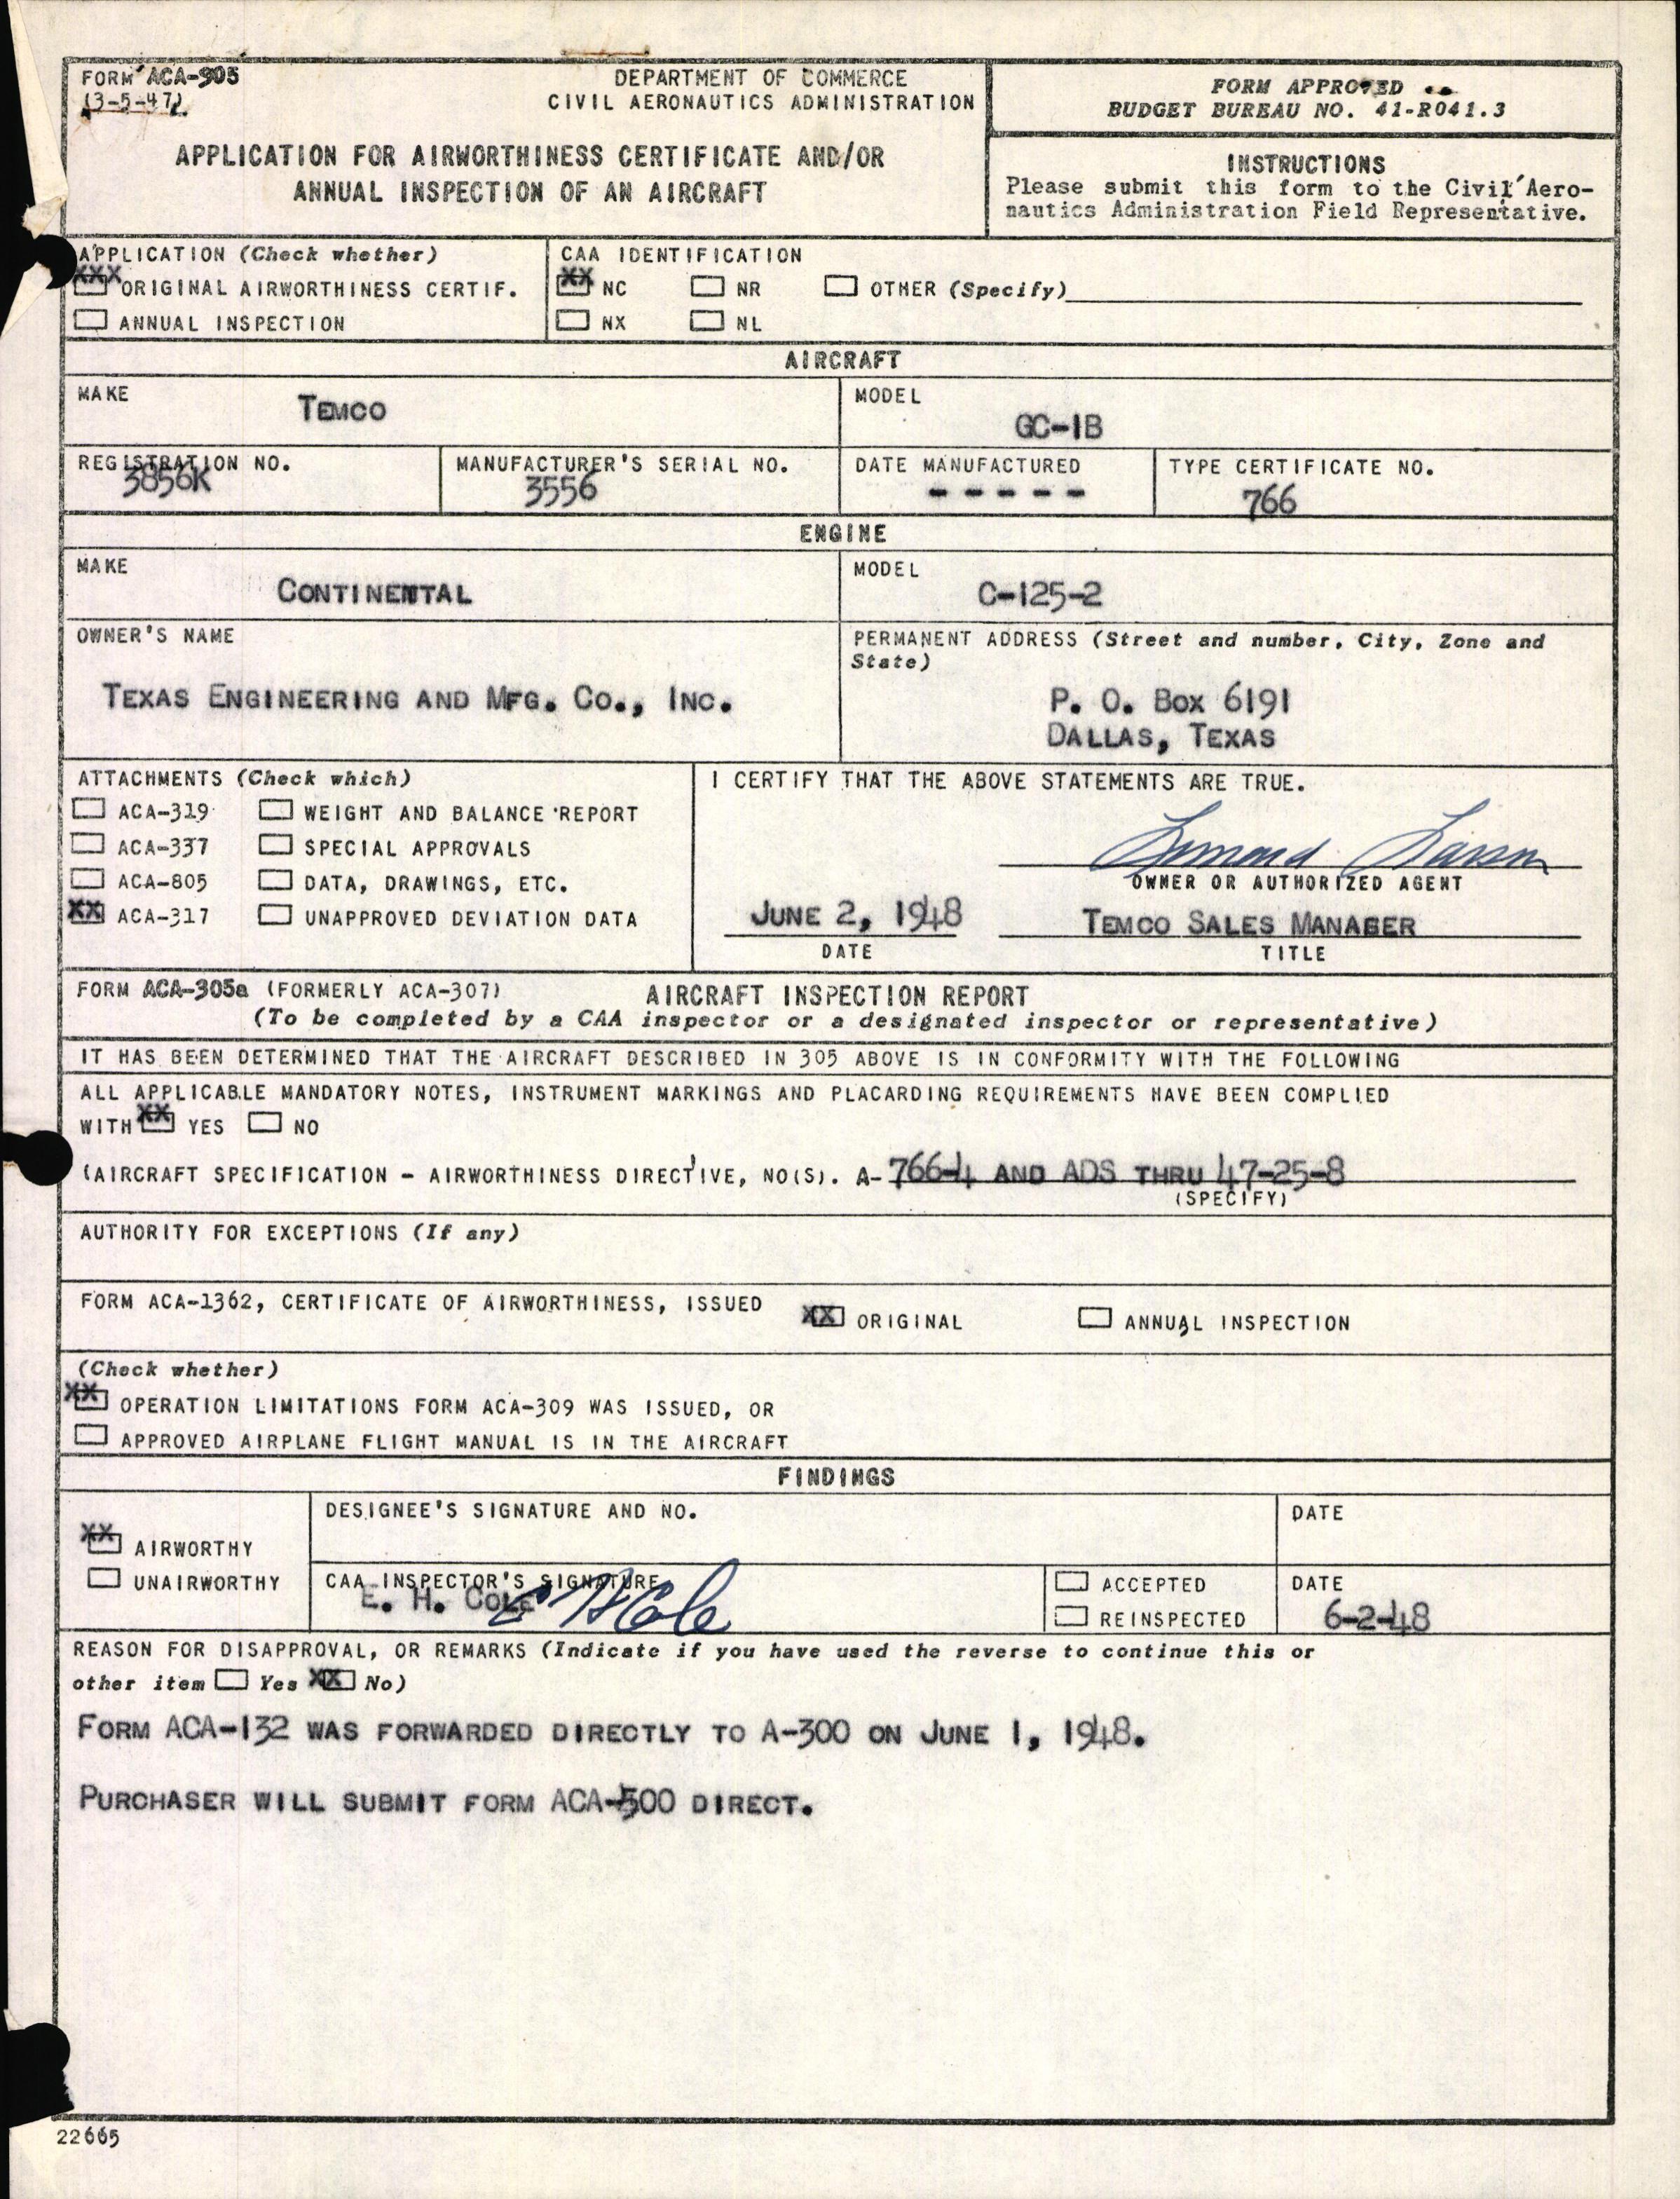 FORM ACA-305
(3-5-47)
DEPARTMENT OF COMMERCE
CIVIL AERONAUTICS ADMINISTRATION
APPLICATION FOR AIRWORTHINESS CERTIFICATE AND/OR
ANNUAL INSPECTION OF AN AIRCRAFT
FORM APPROVED
BUDGET BUREAU NO. 41-R041.3
INSTRUCTIONS
Please submit this form to the Civil Aero-
nautics Administration Field Representative.
APPLICATION (Check whether)
XXX ORIGINAL AIRWORTHINESS CERTIF.
ANNUAL INSPECTION
CAA IDENTIFICATION
XX NC NR OTHER (Specify)
NX NL
AIRCRAFT
MAKE
TEMCO
MODEL
GC-1B
REGISTRATION NO.
3856K
MANUFACTURER'S SERIAL NO.
3556
DATE MANUFACTURED
- - - - -
TYPE CERTIFICATE NO.
766
ENGINE
MAKE
CONTINENTAL
MODEL
C-125-2
OWNER'S NAME
TEXAS ENGINEERING AND MFG. CO., INC.
PERMANENT ADDRESS (Street and number, City, Zone and
State)
P. O. BOX 6191
DALLAS, TEXAS
ATTACHMENTS (Check which)
ACA-319 WEIGHT AND BALANCE REPORT
ACA-337 SPECIAL APPROVALS
ACA-805 DATA, DRAWINGS, ETC.
XX ACA-317 UNAPPROVED DEVIATION DATA
I CERTIFY THAT THE ABOVE STATEMENTS ARE TRUE.
OWNER OR AUTHORIZED AGENT
JUNE 2, 1948
DATE
TEMCO SALES MANAGER
TITLE
FORM ACA-305a (FORMERLY ACA-307)
AIRCRAFT INSPECTION REPORT
(To be completed by a CAA inspector or a designated inspector or representative)
IT HAS BEEN DETERMINED THAT THE AIRCRAFT DESCRIBED IN 305 ABOVE IS IN CONFORMITY WITH THE FOLLOWING
ALL APPLICABLE MANDATORY NOTES, INSTRUMENT MARKINGS AND PLACARDING REQUIREMENTS HAVE BEEN COMPLIED
WITH XX YES NO
(AIRCRAFT SPECIFICATION - AIRWORTHINESS DIRECTIVE, NO(S). A-766-4 AND ADS THRU 47-25-8
(SPECIFY)
AUTHORITY FOR EXCEPTIONS (If any)
FORM ACA-1362, CERTIFICATE OF AIRWORTHINESS, ISSUED XX ORIGINAL ANNUAL INSPECTION
(Check whether)
XX OPERATION LIMITATIONS FORM ACA-309 WAS ISSUED, OR
APPROVED AIRPLANE FLIGHT MANUAL IS IN THE AIRCRAFT
FINDINGS
XX AIRWORTHY
UNAIRWORTHY
DESIGNEE'S SIGNATURE AND NO.
DATE
CAA INSPECTOR'S SIGNATURE
E. H. COLE E H Cole
ACCEPTED
REINSPECTED
DATE
6-2-48
REASON FOR DISAPPROVAL, OR REMARKS (Indicate if you have used the reverse to continue this or
other item Yes XX No)
FORM ACA-132 WAS FORWARDED DIRECTLY TO A-300 ON JUNE 1, 1948.
PURCHASER WILL SUBMIT FORM ACA-500 DIRECT.
22665